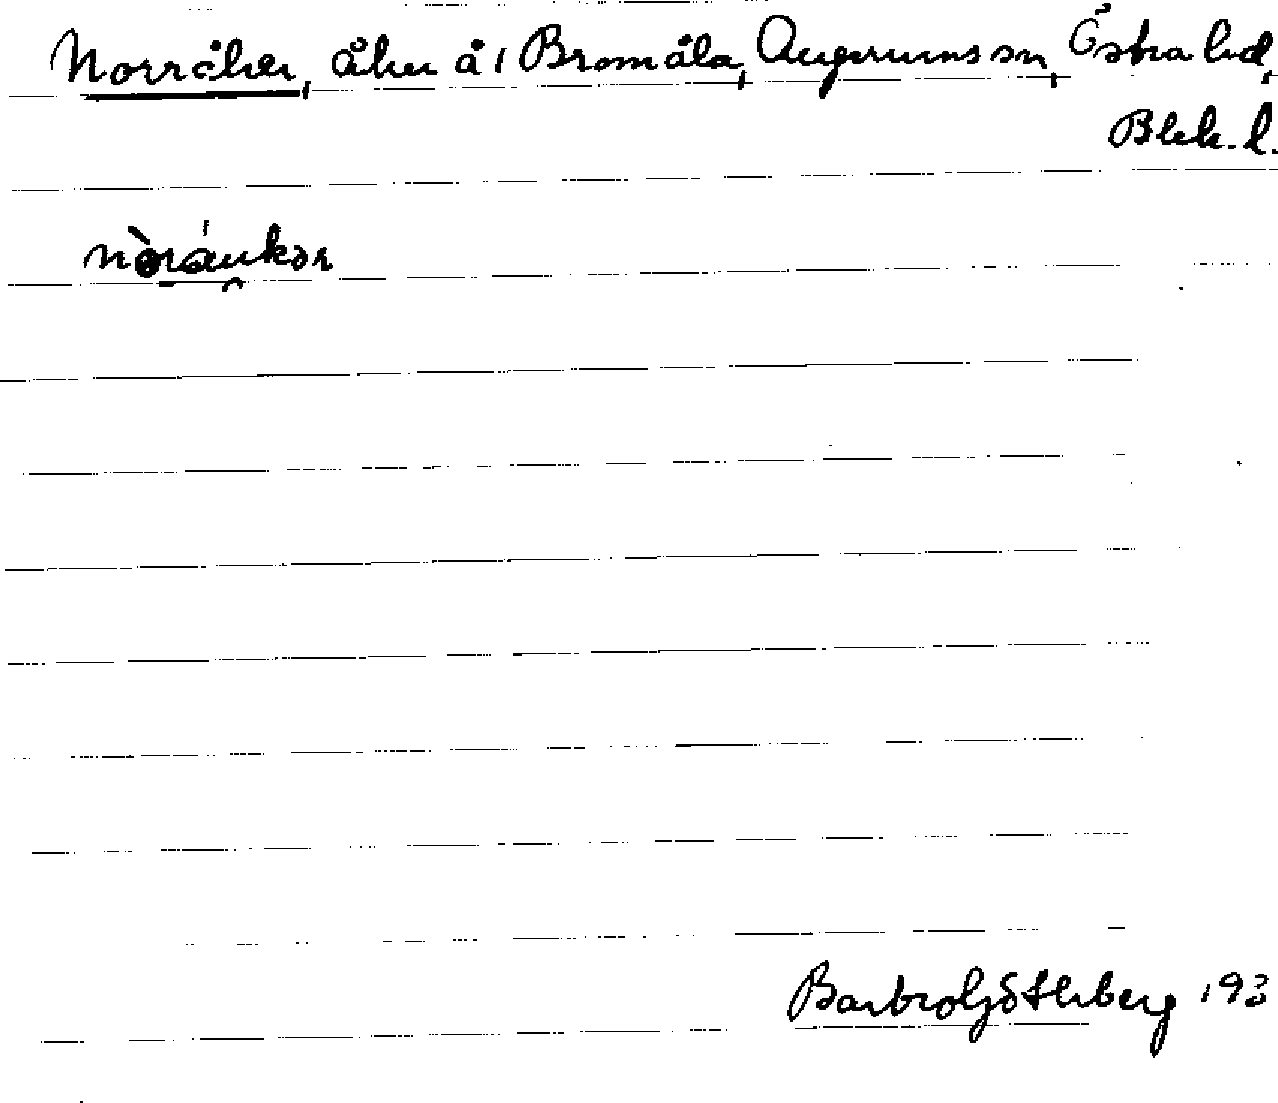 Norråker, åker å 1 Bromåla, Augerums sn, Östra hd,
Blek. l.
nòráukər
Barbro Göthberg 193